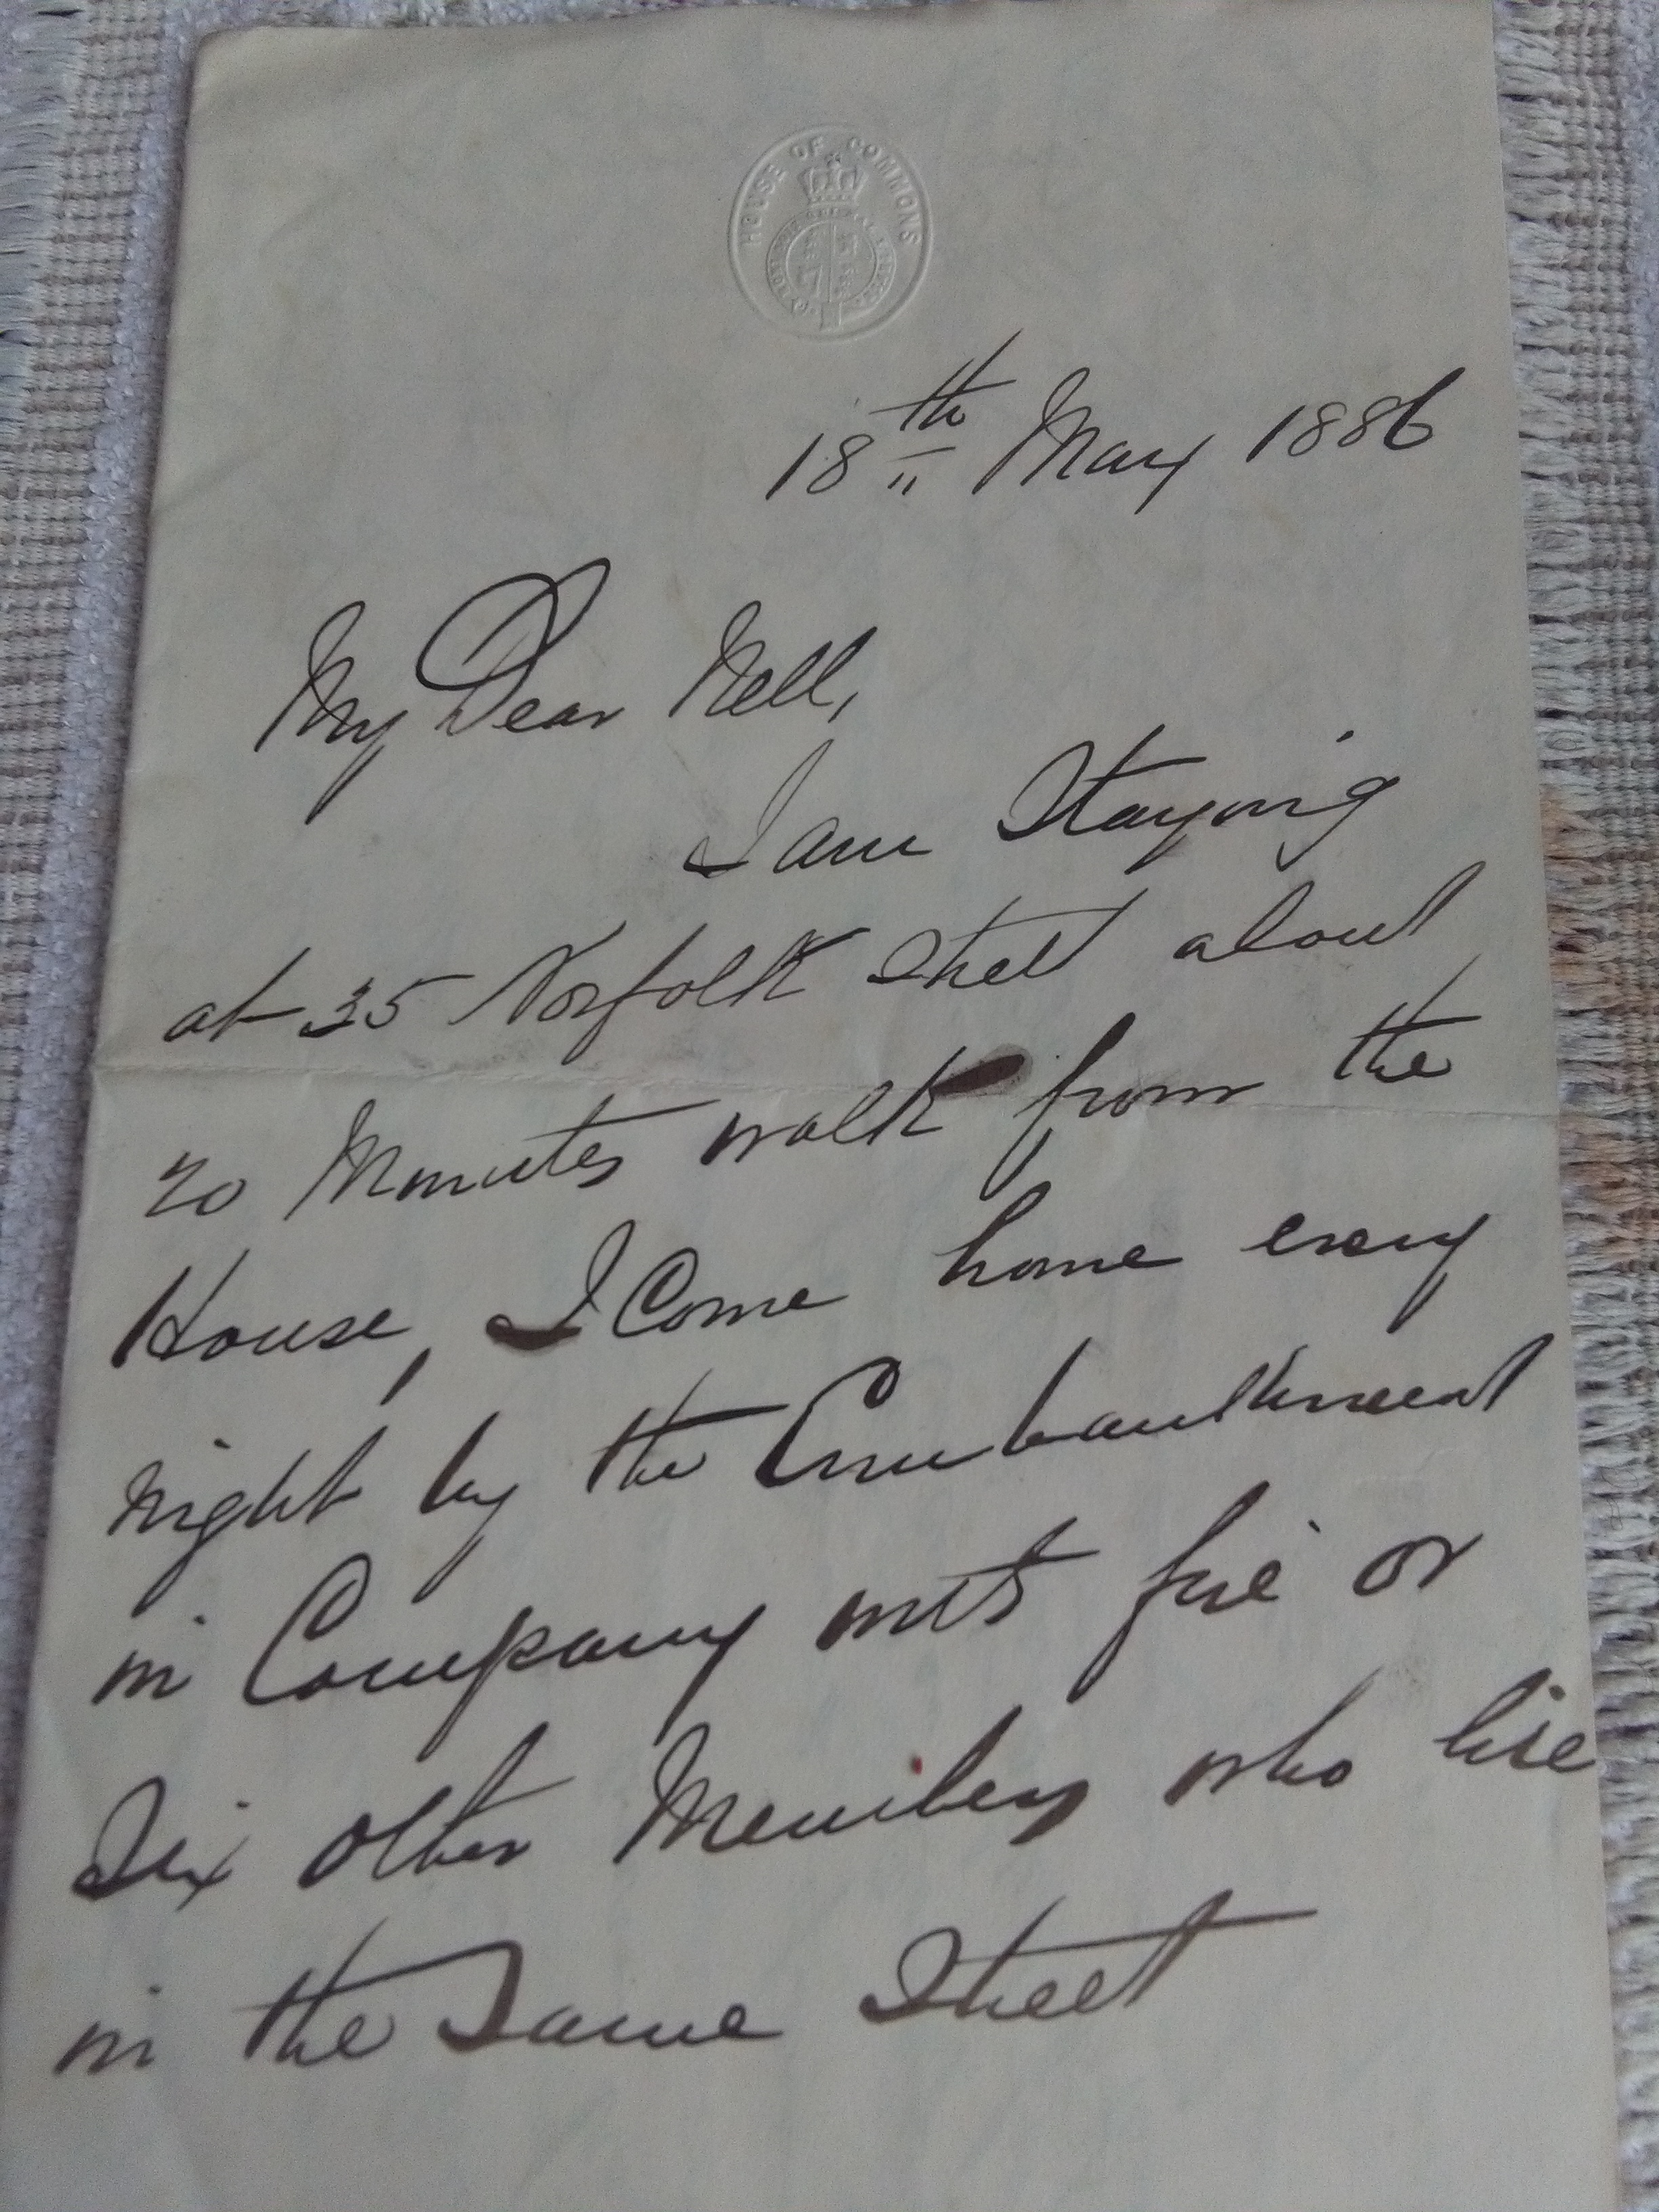 HOUSE OF COMMONS
18th May 1886
My Dear Nell,
I am Staying
at 35 Norfolk Street about
20 Minutes walk from the
House, I Come home every
night by the Embankment
in Company with five or
Six other Members who live
in the Same Street